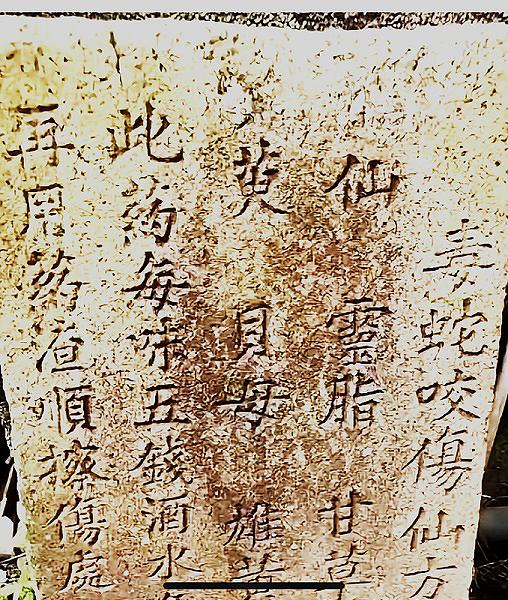 毒蛇咬傷仙方
仙 靈脂 甘草
貝母 雄黄
此药每味五錢酒水
再用药查順擦傷處